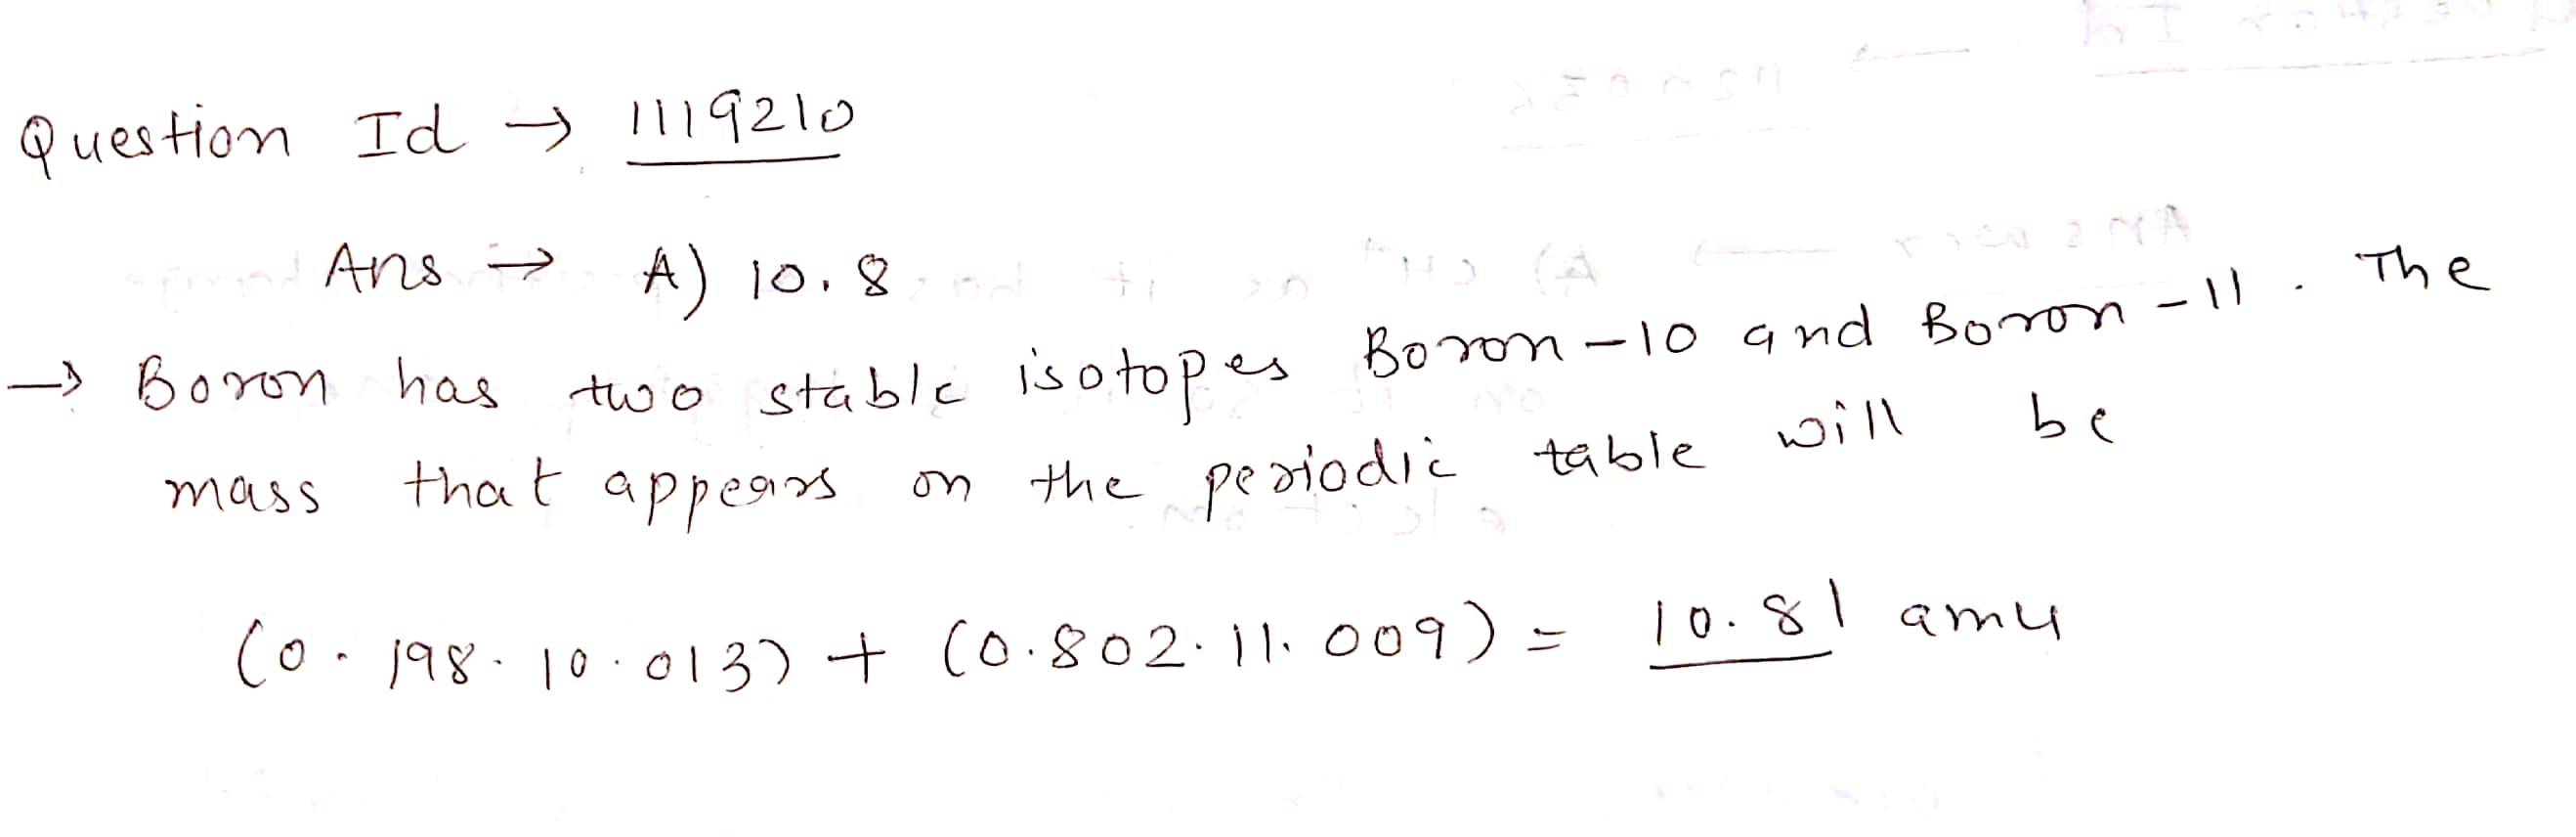 Question Id → 1119210
Ans → A) 10.8
→ Boron has two stable isotopes Boron-10 and Boron-11. The
mass that appears on the periodic table will be
(0.198.10.013) + (0.802.11.009) = 10.81 amu